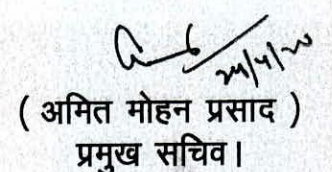 24/4/20
( अमित मोहन प्रसाद )
प्रमुख सचिव।